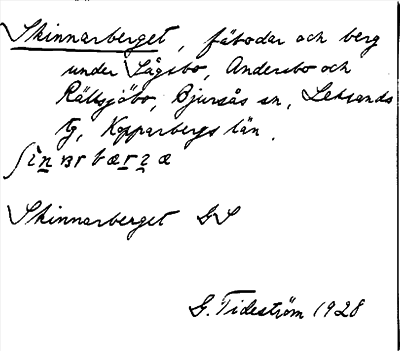 Skinnarberget, fäbodar och berg
under Sågsbo, Andersbo och
Rällsjöbo, Bjursås sn, Leksands
tg, Kopparbergs län.
ʃin̲ɴr bær̲z̲æ
Skinnarberget GS
G. Tideström 1928